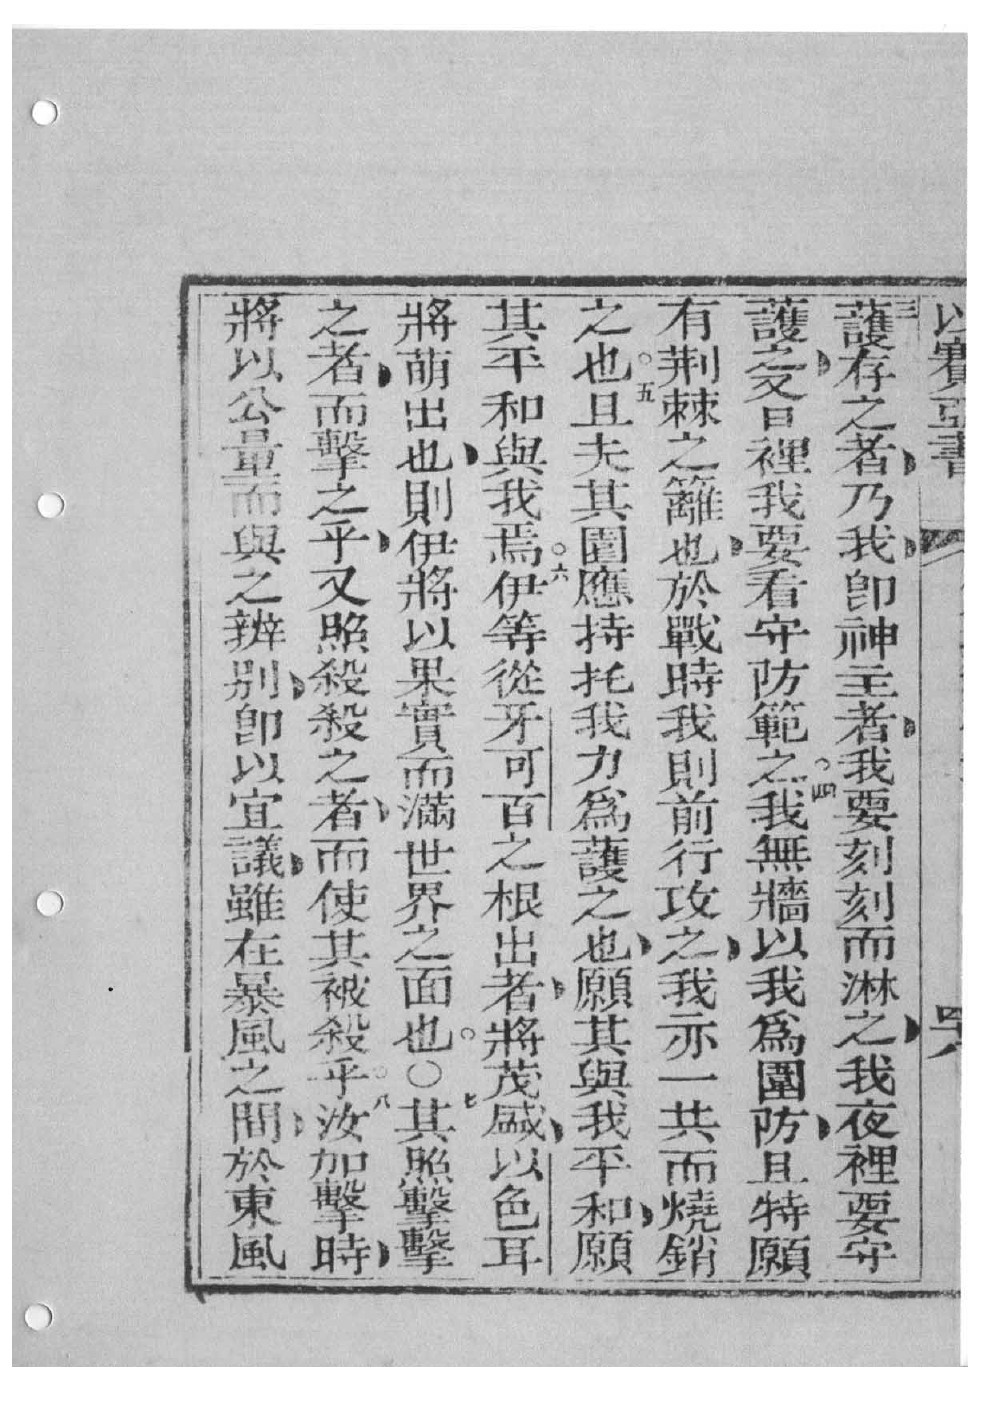 以賽亞書
護存之者乃我卽神主者我要刻刻而淋之我夜裡要守
護之又日裡我要看守防範之○四我無牆以我爲圍防且特願
有荆棘之籬也於戰時我則前行攻之我亦一共而燒銷
之也○五且夫其圍應持托我力爲護之也願其與我平和願
其平和與我焉○六伊等從牙可百之根出者將茂盛以色耳
將萌出也則伊將以果實而滿世界之面也○七○其照擊擊
之者而擊之乎又照殺殺之者而使其被殺乎○八汝加擊時
將以公量而與之辨别卽以宜議雖在暴風之間於東風